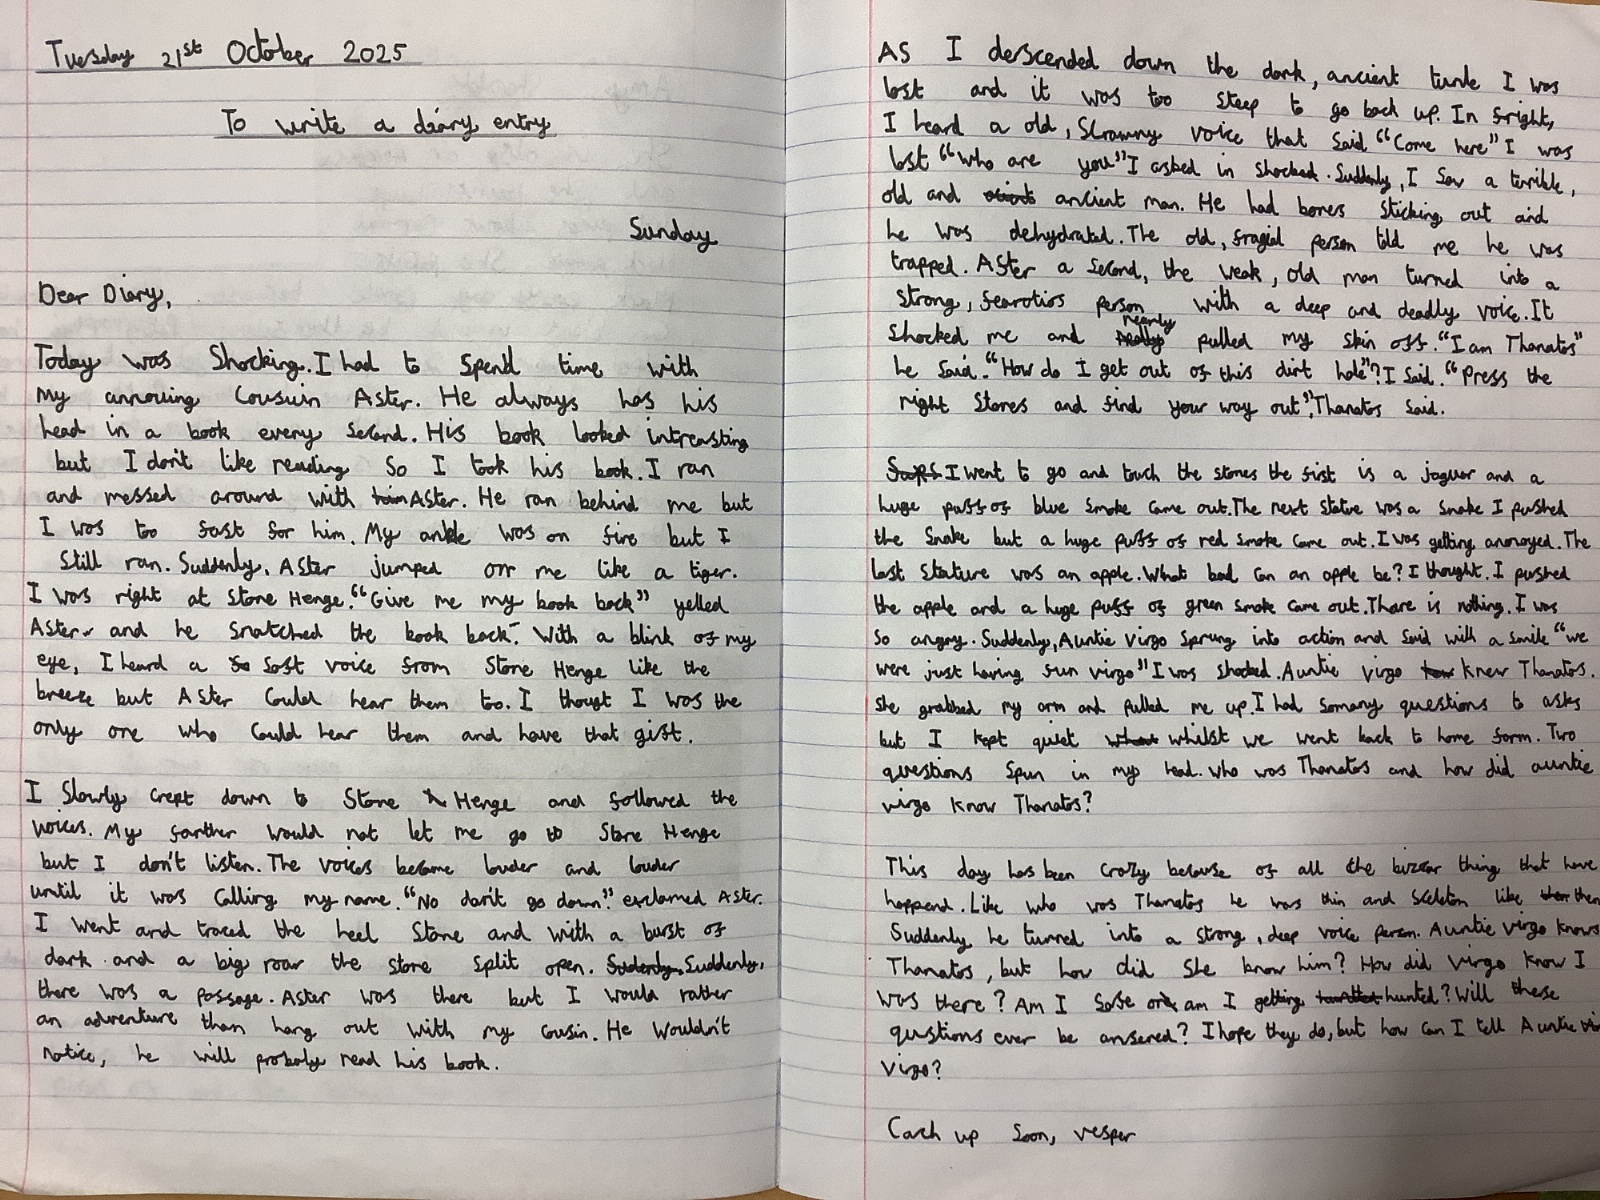 Tuesday 21st October 2025
To write a diary entry
Sunday
Dear Diary,
Today was Shocking. I had to spend time with
my annouing Cousuin Aster. He always has his
head in a book every second. His book looked intreasting
but I don't like reading so I took his book. I ran
and messed around with him Aster. He ran behind me but
I was to fast for him. My ankle was on fire but I
still ran. Suddenly, Aster jumped on me like a tiger.
I was right at Stone Henge. "Give me my book back" yelled
Aster and he snatched the book back. With a blink of my
eye, I heard a so soft voice from Stone Henge like the
breeze but Aster could hear them too. I thougt I was the
only one who could hear them and have that gift.
I Slowly crept down to Stone Henge and followed the
voices. My farther would not let me go to Stone Henge
but I don't listen. The voices became louder and louder
until it was calling my name. "No don't go down." exclamed Aster.
I went and traced the heel Stone and with a burst of
dark and a big roar the stone split open. Sudenly, Suddenly,
there was a passage. Aster was there but I would rather
an adventure than hang out with my cousin. He wouldn't
notice, he will probaly read his book.
As I descended down the dark, ancient tunle I was
lost and it was too steep to go back up. In fright,
I heard a old, Scrawny voice that said "Come here" I was
lost "who are you" I asked in shocked. Suddenly, I saw a terrible,
old and ancient man. He had bones sticking out and
he was dehydrated. The old, fragial person told me he was
trapped. After a second, the weak, old man turned into a
strong, fearotios person with a deep and deadly voice. It
shocked me and nearly pulled my skin off. "I am Thanatos"
he said. "How do I get out of this dirt hole"? I said. "Press the
right stones and find your way out", Thanatos said.
I went to go and touch the stones the first is a jaguar and a
huge puff of blue smoke came out. The next statue was a snake I pushed
the snake but a huge puff of red smoke came out. I was getting anonoyed. The
last stature was an apple. What bad can an apple be? I thought. I pushed
the apple and a huge puff of green smoke came out. Thare is nothing. I was
so angry. Suddenly, Auntie virgo sprung into action and said with a smile "we
were just having fun virgo" I was shocked. Auntie virgo knew Thanatos.
she grabbed my arm and pulled me up. I had somany questions to asks
but I kept quiet whilst we went back to home farm. Two
questions spun in my head. who was Thanatos and how did auntie
virgo know Thanatos?
This day has been crazy because of all the bizzar thing that have
happend. Like who was Thanatos he was thin and sceleton like then
Suddenly he turned into a strong, deep voice person. Auntie virgo knows
Thanatos, but how did she know him? How did virgo know I
was there? Am I safe or am I getting hunted? Will these
qustions ever be ansered? I hope they do, but how can I tell Auntie
virgo?
Cach up soon, vesper